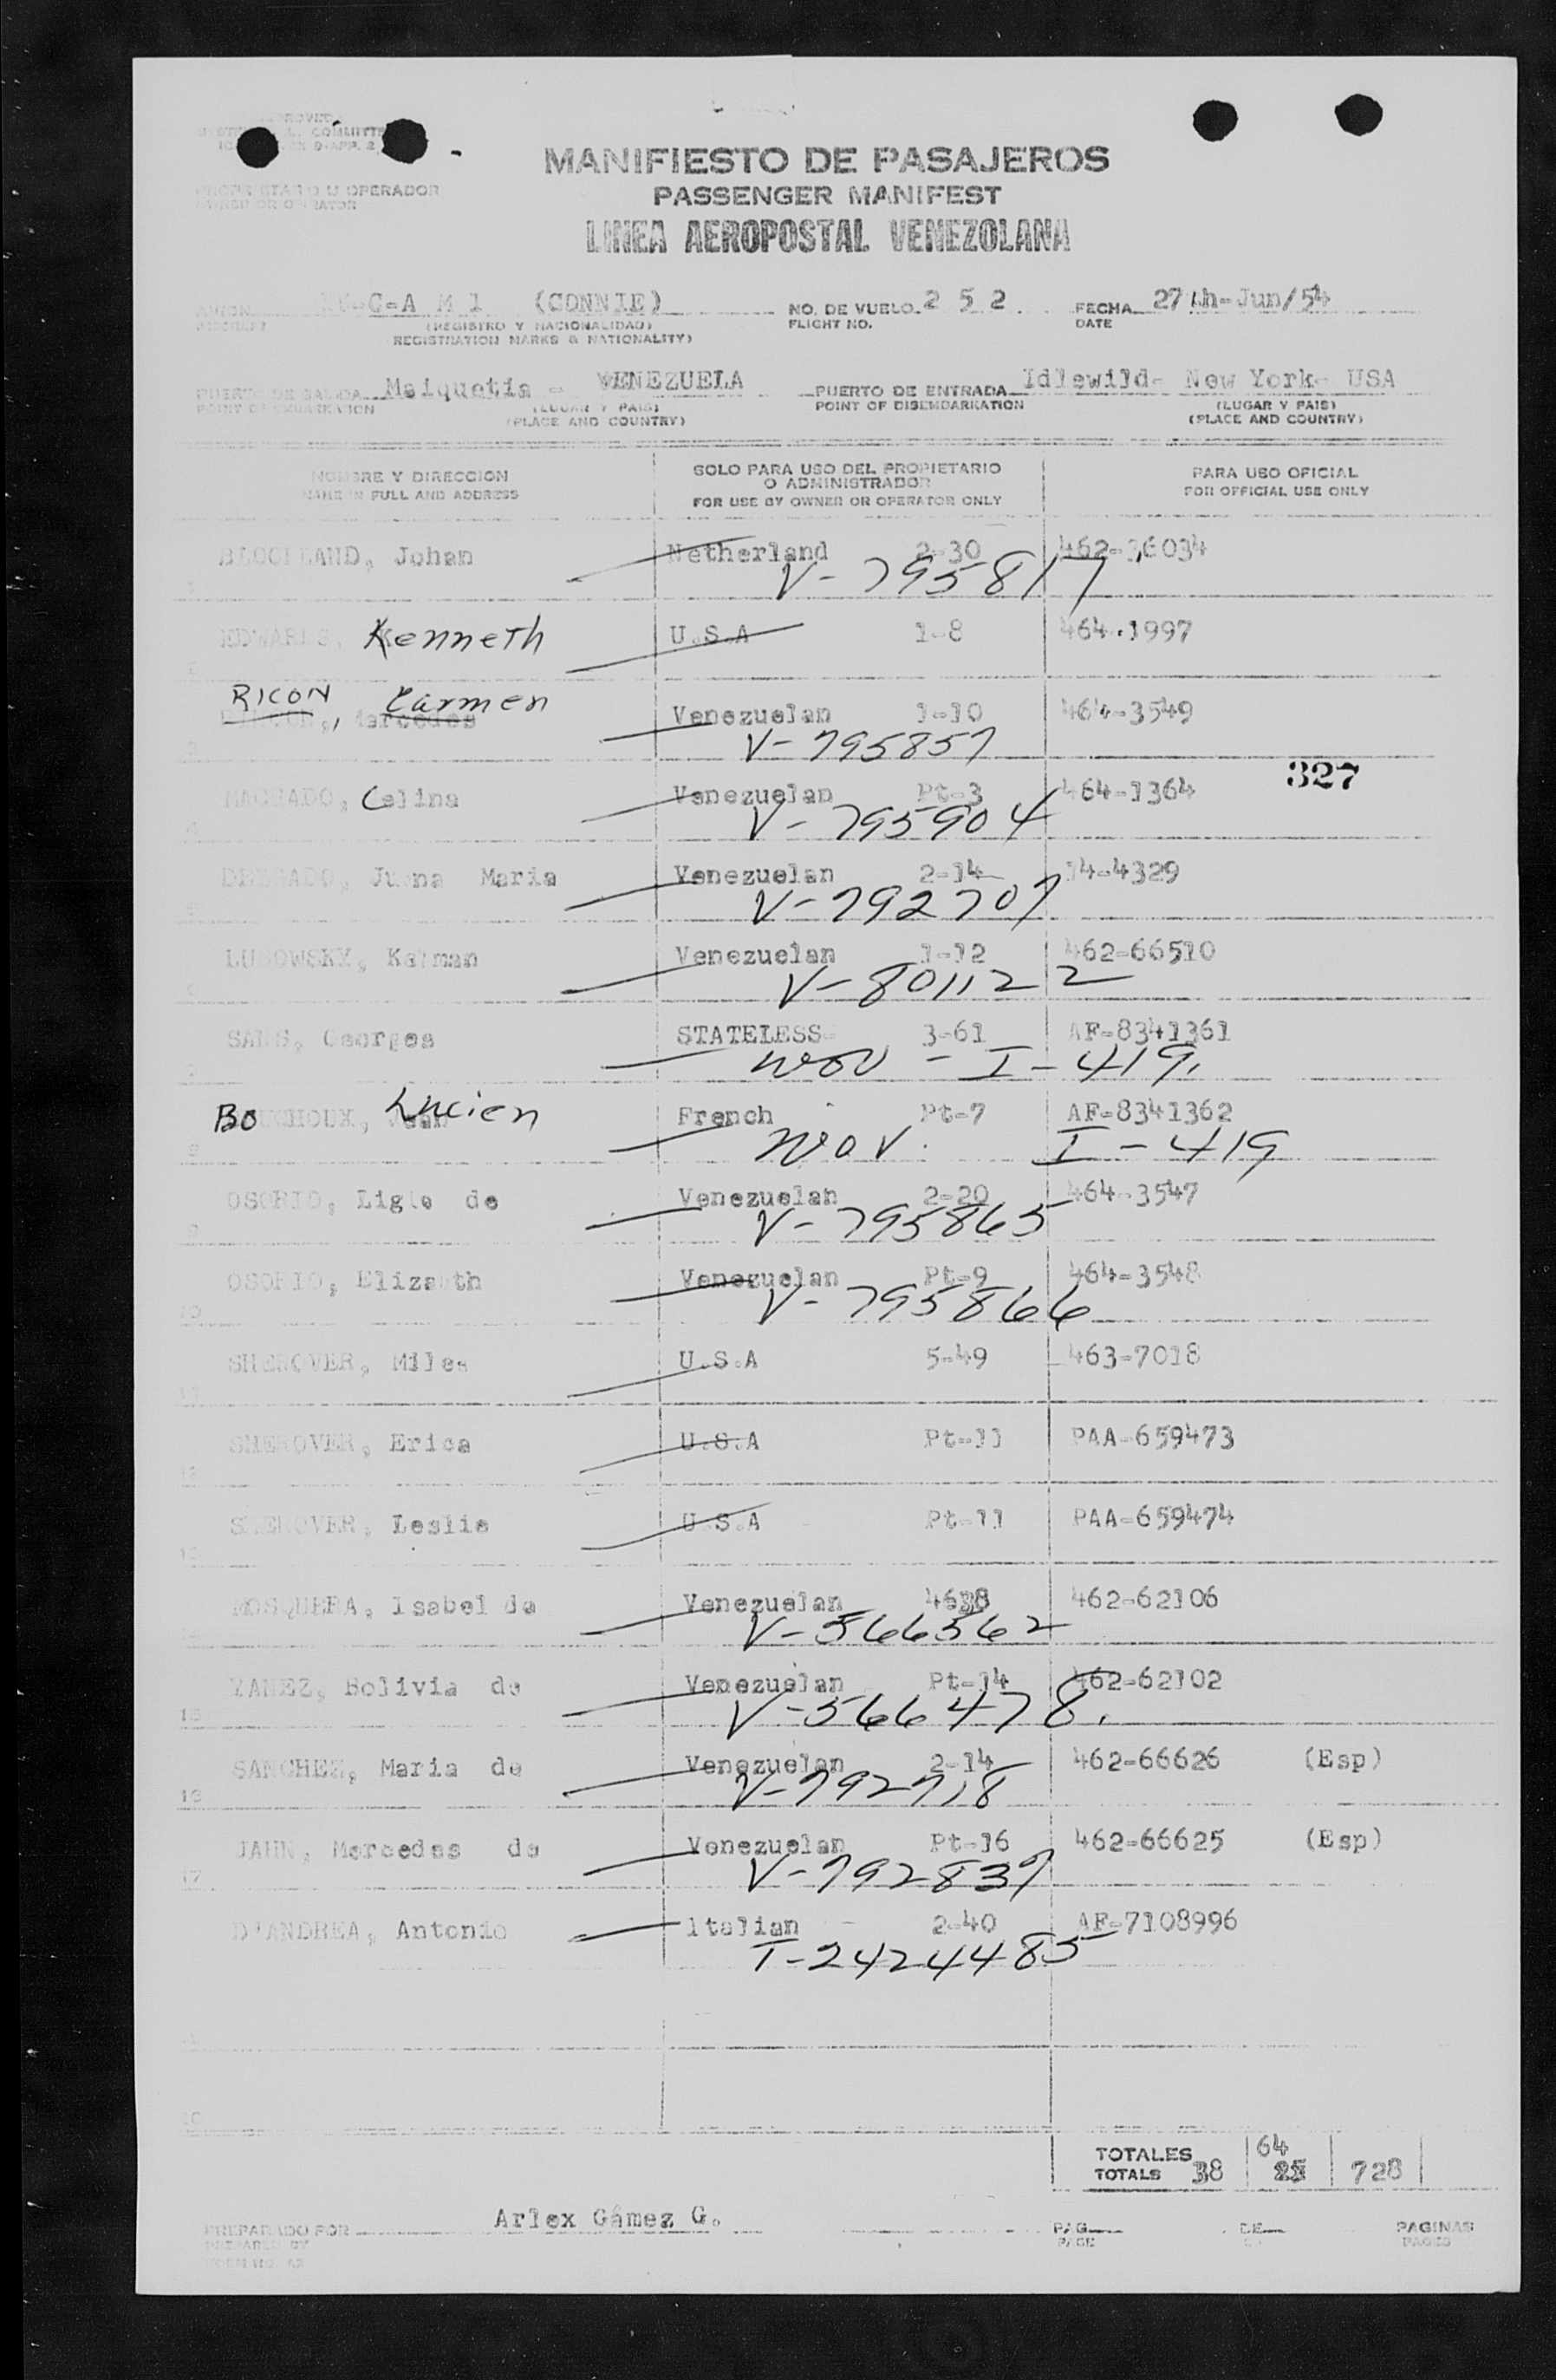 MANIFIESTO DE PASAJEROS
PASSENGER MANIFEST
LINEA AEROPOSTAL VENEZOLANA
U OPERADOR
C-A M 1 (CONNIE) NO. DE VUELO 2 5 2 FECHA 27 th-Jun/54
(REGISTRO Y NACIONALIDAD) FLIGHT NO. DATE
REGISTRATION MARKS & NATIONALITY)
PUERTO DE SALIDA Maiquetia - VENEZUELA PUERTO DE ENTRADA Idlewild- New York- USA
POINT OF EMBARKATION (LUGAR Y PAIS) POINT OF DISEMBARKATION (LUGAR Y PAIS)
(PLACE AND COUNTRY) (PLACE AND COUNTRY)
NOMBRE Y DIRECCION SOLO PARA USO DEL PROPIETARIO PARA USO OFICIAL
O ADMINISTRADOR
NAME IN FULL AND ADDRESS FOR USE BY OWNER OR OPERATOR ONLY FOR OFFICIAL USE ONLY
Johan Netherland 2-30 462-36034
V-795817
EDWARDS, Kenneth U.S.A 1-8 464-1997
RICON, Carmen
Mercedes Venezuelan 1-10 464-3549
V-795857
327
MACHADO, Celina Venezuelan Pt-3 464-1364
V-795904
Juana Maria Venezuelan 2-14 14-4329
V-792707
Kalman Venezuelan 1-12 462-66510
V-801122
Georges STATELESS 3-61 AF-8341361
WOV - I-419.
Bo Lucien French Pt-7 AF-8341362
WOV. I-419
OSORIO, de Venezuelan 2-20 464-3547
V-795865
OSORIO, Venezuelan Pt-9 464-3548
V-795866
SHEROVER, Miles U.S.A 5-49 463-7018
SHEROVER, Erica U.S.A Pt-11 PAA-659473
SHEROVER, Leslie U.S.A Pt-11 PAA-659474
MOSQUERA, Isabel de Venezuelan 462-62106
V-566562
YANEZ, Bolivia de Venezuelan Pt-14 462-62102
V-566478.
SANCHEZ, Maria de Venezuelan 2-14 462-66626 (Esp)
V-792718
JAHN, Mercedes de Venezuelan Pt-16 462-66625 (Esp)
V-792837
D'ANDREA, Antonio Italian 2-40 AF-7108996
I-2424485
TOTALES 64
TOTALS 38 728
Arlex Gámez G.
PREPARADO POR PAG. DE PAGINAS
PREPARED BY PAGE PAGES